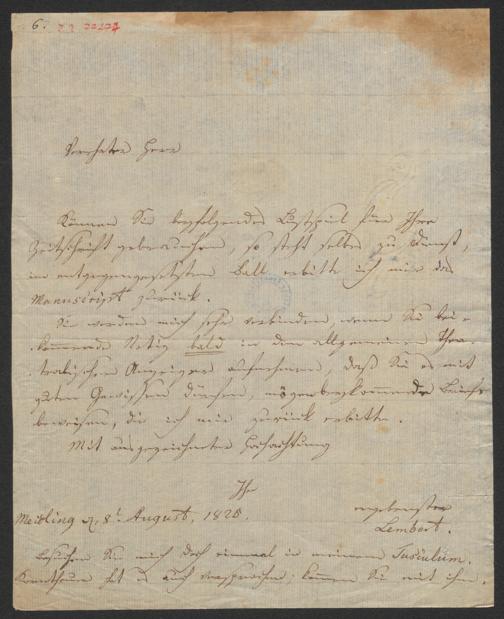 6.
Verehrter Herr
Können Sie beyfolgendes Lustspiel für Ihre
Zeitschrift gebrauchen, so steht selbes zu Dienst,
im entgegengesetzten Fall erbitte ich mir das
Manuscript zurück.
Sie werden mich sehr verbinden wenn Sie bei-
kommende Notiz bald in den allgemeinen Thea-
tralischen Anzeiger aufnehmen, daß Sie es mit
gutem Gewissen dürfen, mögen beykommende Briefe
beweisen, die ich mir zurück erbitte.
Mit ausgezeichneter Hochachtung
Ihr
Meidling 8t August, 1820.
ergebenster
Lembert.
Besuchen Sie mich doch einmal in meinem Tusculum.
hat es auch versprochen; kommen Sie mit ihm.